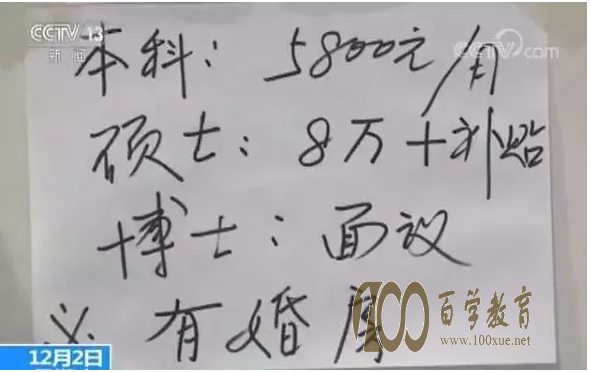 CCTV 13
新闻
CCTV.com
本科：5800元/月
硕士：8万+补贴
博士：面议
※ 有婚房
100 百学教育
www.100xue.net
12月2日